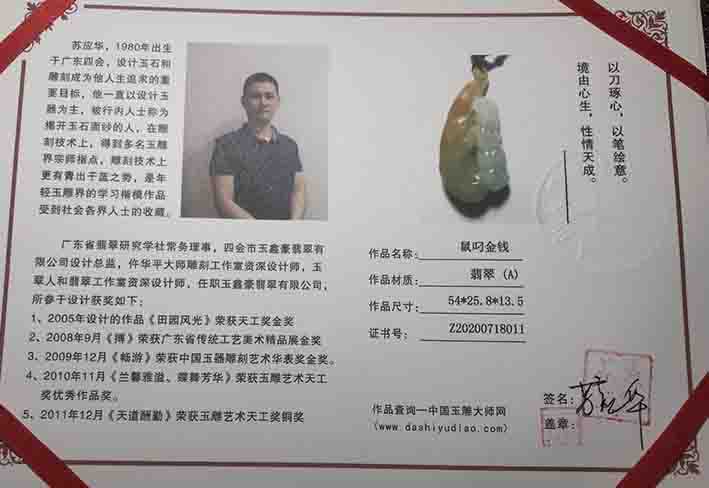 苏应华，1980年出生
于广东四会，设计玉石和
雕刻成为他人生追求的重
要目标，他一直以设计玉
雕为主，被行内人士称为
揭开玉石面纱的人，在雕
刻技术上，得到多名玉雕
界宗师指点，雕刻技术上
更有青出于蓝之势，是年
轻玉雕界的学习楷模作品
受到社会各界人士的收藏。
广东省翡翠研究学社常务理事，四会市玉鑫豪翡翠有
限公司设计总监，仵华平大师雕刻工作室资深设计师，玉
翠人和翡翠工作室资深设计师，任职玉鑫豪翡翠有限公司，
所参于设计获奖如下：
1、2005年设计的作品《田园风光》荣获天工奖金奖
2、2008年9月《搏》荣获广东省传统工艺美术精品展金奖
3、2009年12月《畅游》荣获中国玉器雕刻艺术华表奖金奖。
4、2010年11月《兰馨雅溢、蝶舞芳华》荣获玉雕艺术天工
奖优秀作品奖。
5、2011年12月《天道酬勤》荣获玉雕艺术天工奖铜奖
以刀琢心，以笔绘意。
境由心生，性情天成。
作品名称：鼠叼金钱
作品材质：翡翠（A）
作品尺寸：54*25.8*13.5
证书号：Z20200718011
作品查询一中国玉雕大师网
(www.dashiyudiao.com)
签名：
盖章：